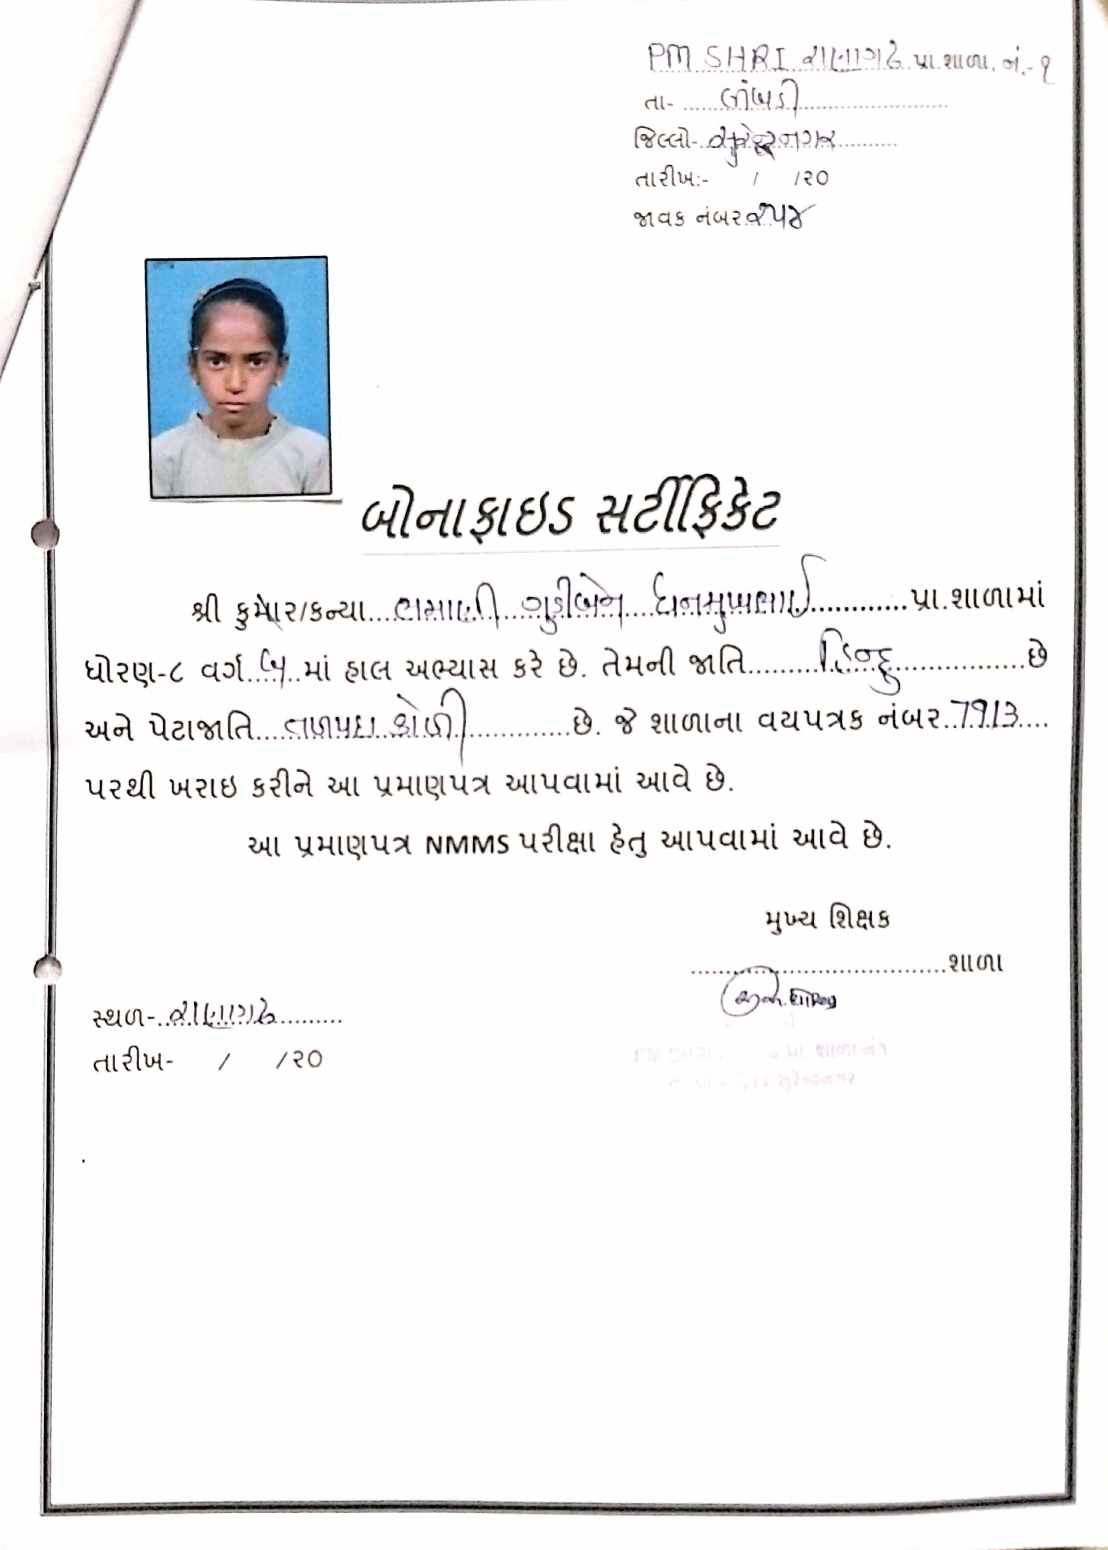 PM SHRI રાણાગઢ પ્રા.શાળા. નં.-૧
તા- ......લીંબડી......................
જિલ્લો-..સુરેન્દ્રનગર..........
તારીખ:- / /૨૦
જાવક નંબર.૨૫૪
બોનાફાઇડ સર્ટીફિકેટ
શ્રી કુમાર/કન્યા... ગુડીબેન...ધનસુખભાઈ............પ્રા.શાળામાં
ધોરણ-૮ વર્ગ.બ..માં હાલ અભ્યાસ કરે છે. તેમની જાતિ.........હિન્દુ................છે
અને પેટાજાતિ....તળપદા કોળી.............છે. જે શાળાના વયપત્રક નંબર..7913....
પરથી ખરાઇ કરીને આ પ્રમાણપત્ર આપવામાં આવે છે.
આ પ્રમાણપત્ર NMMS પરીક્ષા હેતુ આપવામાં આવે છે.
મુખ્ય શિક્ષક
..................................શાળા
સ્થળ-..રાણાગઢ..........
તારીખ- / /૨૦